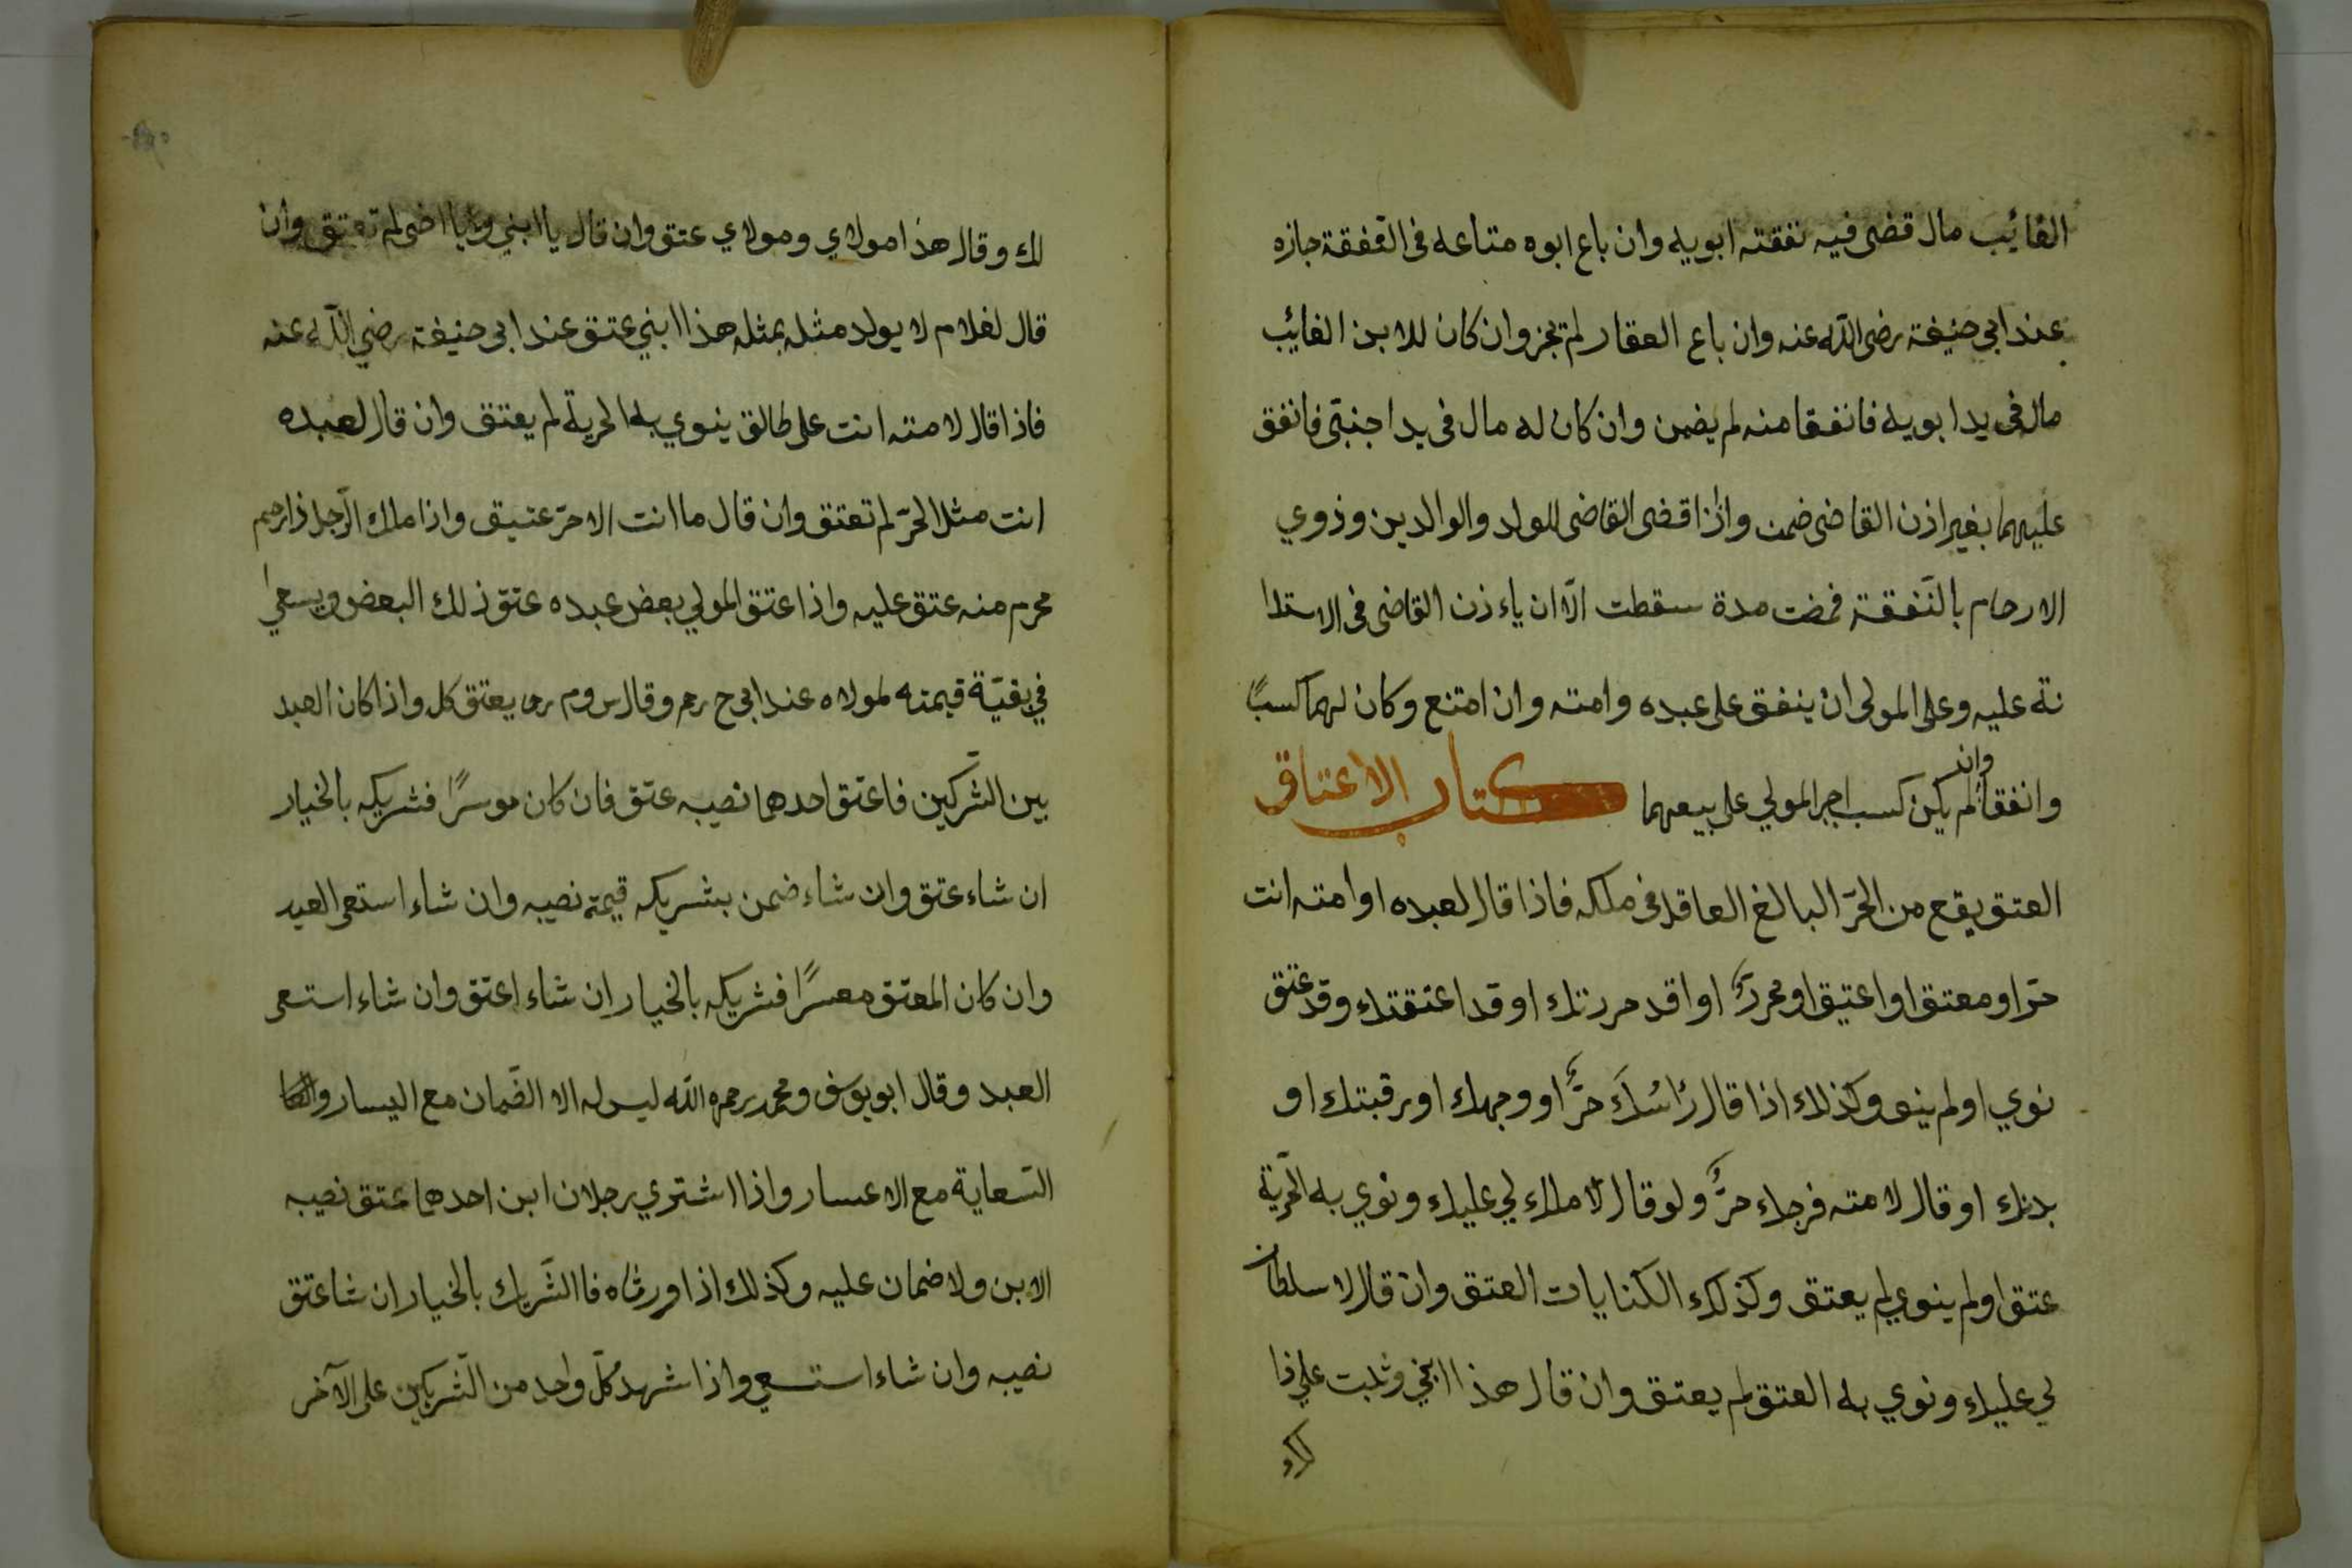 الغائب مال قضى فيه نفقته ابويه وان باع ابوه متاعه فى النفقة جازه
عند ابى حنيفة رضى الله عنه وان باع العقار لم يجز وان كان للابن الغائب
مال فى يد ابويه فانفقا منه لم يضمن وان كان له مال فى يد اجنبى فانفق
عليهما بغير اذن القاضى ضمن واذا قضى القاضى للولد والوالدين وذوي
الارحام بالنّفقة فمضت مدة سقطت الّا ان ياءذن القاضى فى الاستدا
نة عليه وعلى المولى ان ينفق على عبده وامته وان امتنع وكان لهما كسبًا
وانفقا وان لم يكن كسب اجبر المولي على بيعهما كتاب الاعتاق
العتق يقع من الحرّ البالغ العاقل فى ملكه فاذا قال لعبده او امته انت
حرّ او معتق او اعتيق او محررٌ او اقد حررتك او قد اعتقتك وقد عتق
نوي او لم ينو وكذلك اذا قال رٔاسُكَ حرٌّ او وجهك او رقبتك او
بدنك او قال لامته فرجك حرٌّ ولو قال لا ملك لي عليك ونوي به الحرّيّة
عتق او لم ينوي لم يعتق وكذلك الكنايات العتق وان قال لا سلطان
لي عليك ونوي به العتق لم يعتق وان قال هذا ابني وثبت على ذا
لك
لك وقال هذا مولاي ومولاي عتق وان قال يا ابني ويا اخى لم تعتق وان
قال لغلام لا يولد مثله بمثله هذا ابني عتق عند ابى حنيفة رضي الله عنه
فاذا قال لامته انت على طالق ينوي به الحرية لم يعتق وان قال لعبده
انت مثل الحرّ لم تعتق وان قال ما انت الا حرّ عتيق واذا ملك الرّجل ذا رحم
محرم منه عتق عليه واذا عتق المولي بعض عبده عتق ذلك البعض ويسعي
في بقيّة قيمته لمولاه عند ابى ح رحم وقال س وم رحما يعتق كل واذا كان العبد
بين الشّركين فاعتق احدهما نصيبه عتق فان كان موسرًا فشريكه بالخيار
ان شاء عتق وان شاء ضمن بشريكه قيمة نصيبه وان شاء استعى العبد
وان كان المعتق معسرًا فشريكه بالخيار ان شاء اعتق وان شاء استعى
العبد وقال ابو يوسف ومحمد رحمه الله ليس له الا الضّمان مع اليسار
السّعاية مع الاعسار واذا اشتري رجلان ابن احدهما عتق نصيبه
الابن ولا ضمان عليه وكذلك اذا اورثاه فا الشّريك بالخيار ان شا عتق
نصيبه وان شاء استسعي واذا شهد كلّ واحد من الشّريكين على الآخر